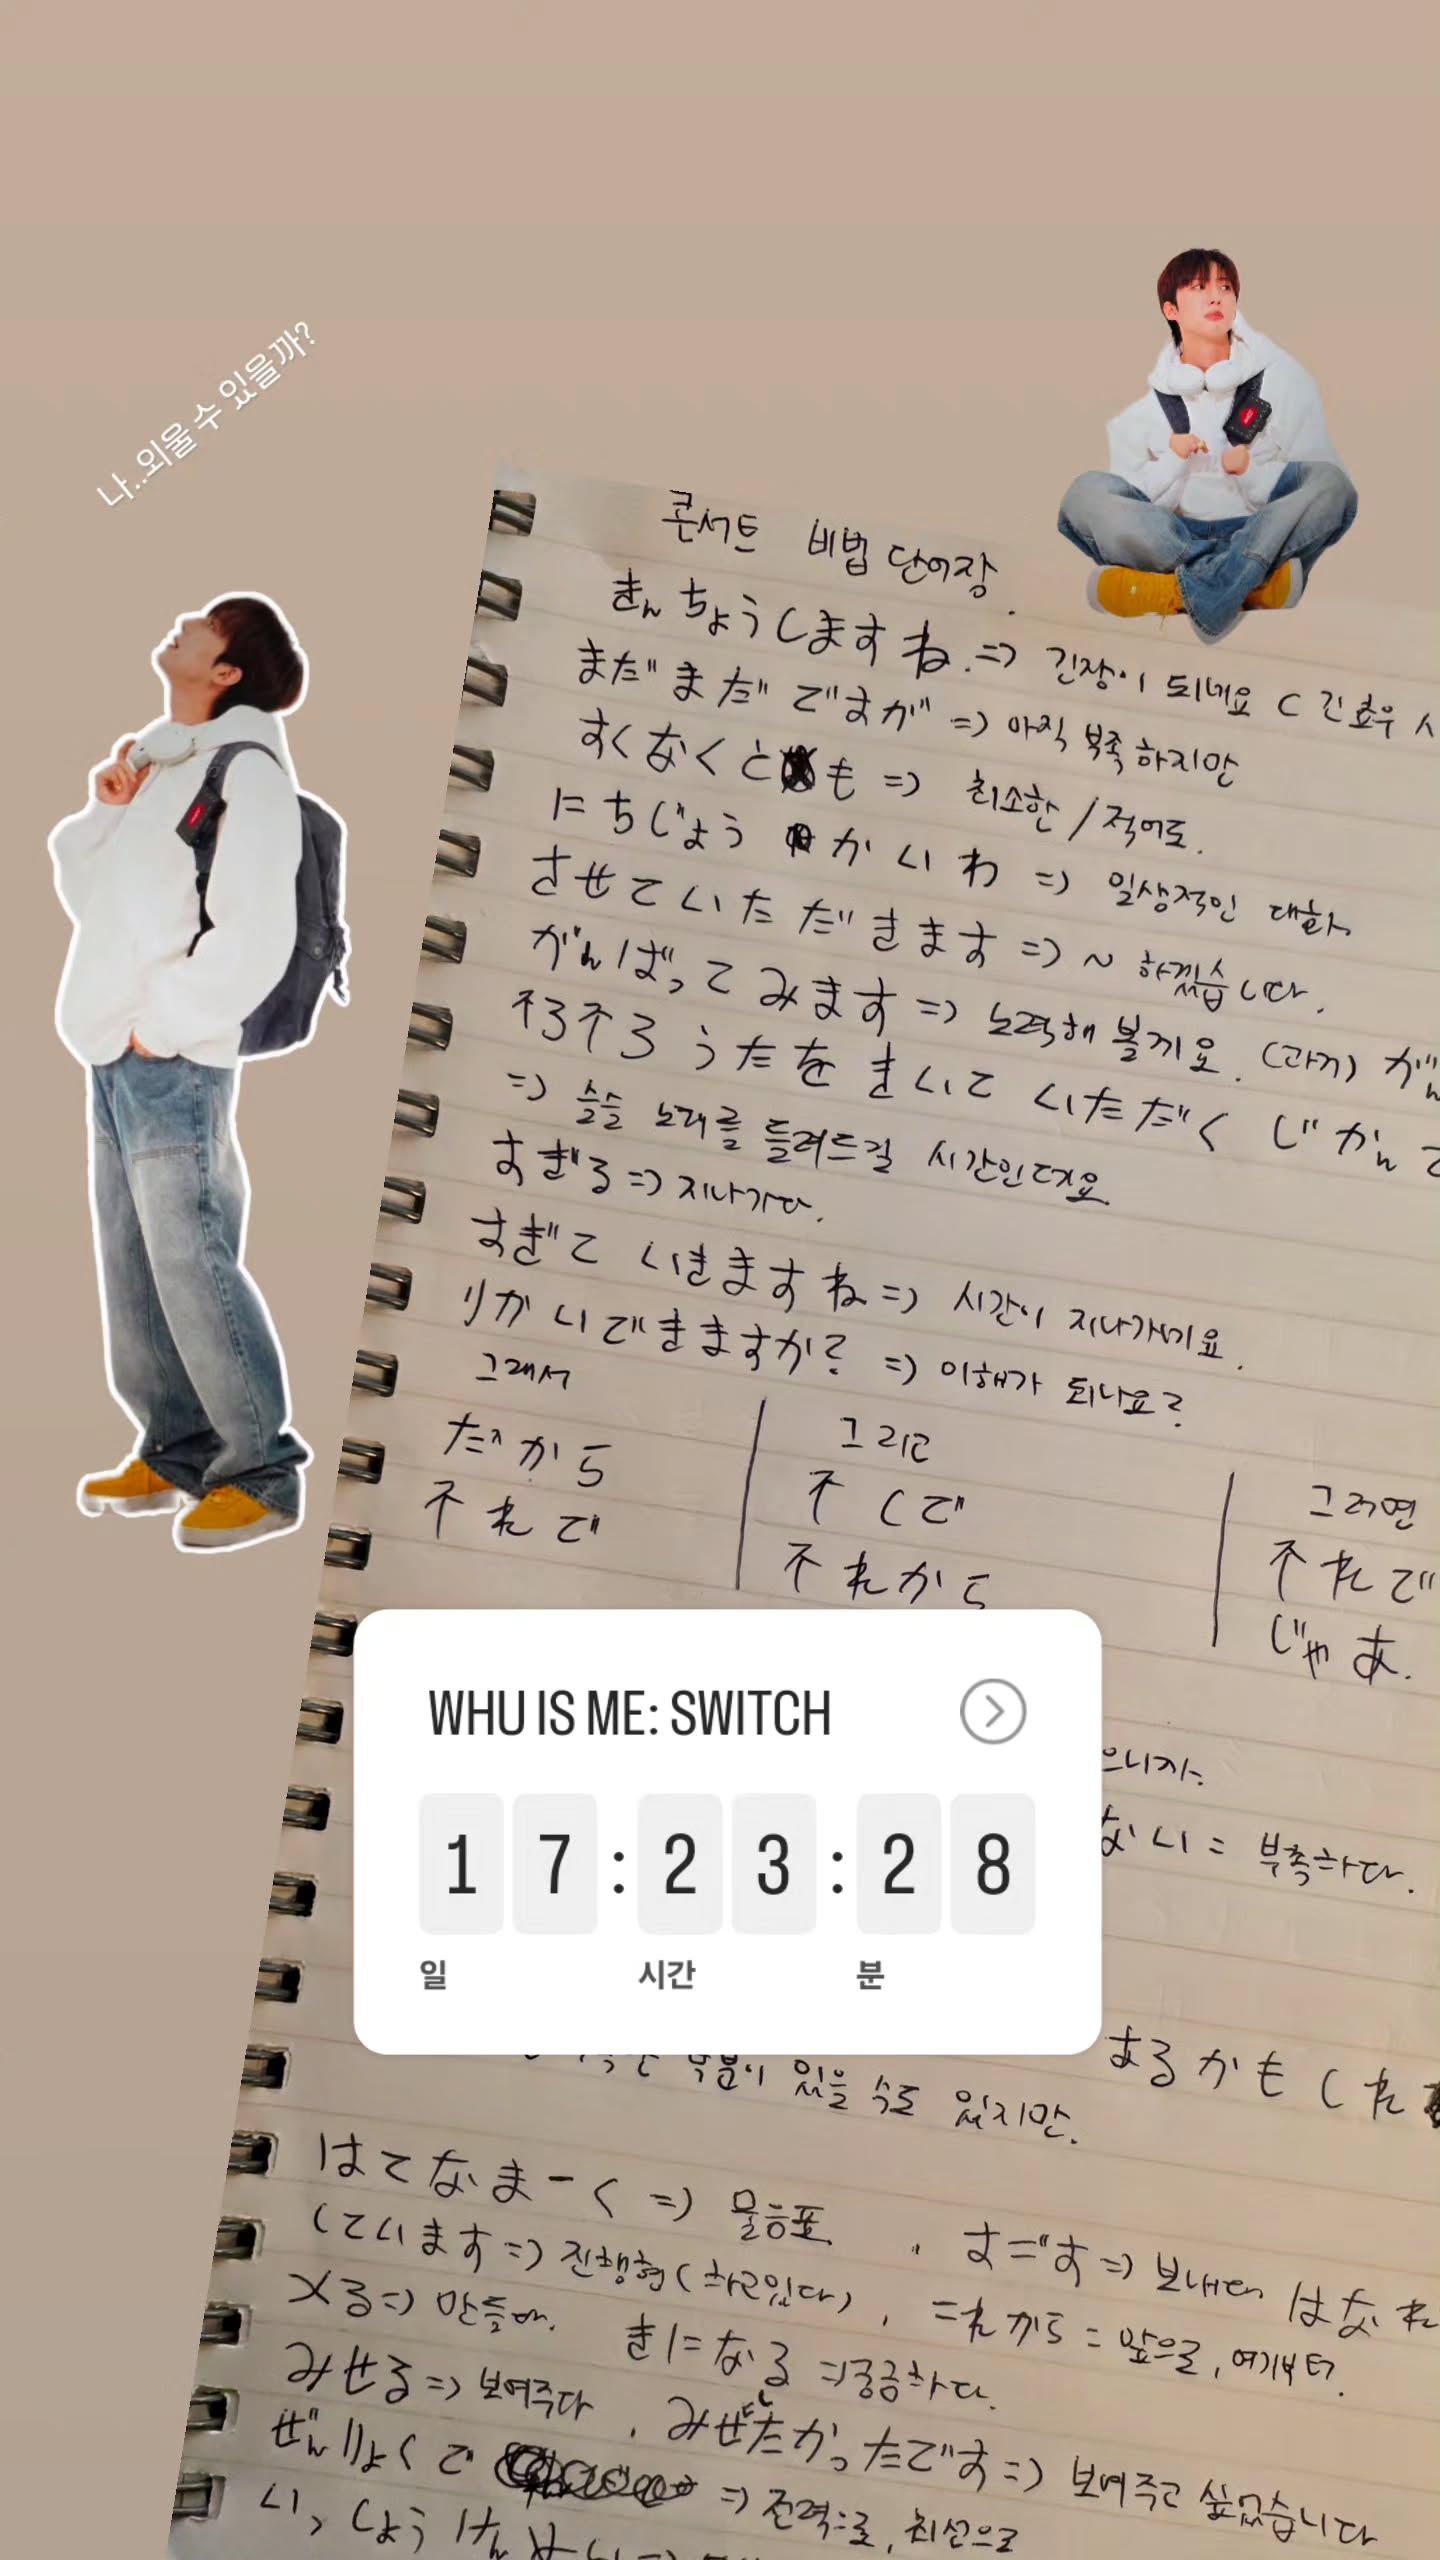 나..외울 수 있을까?
콘서트 비법 단어장.
きんちょうしますね. => 긴장이 되네요 (긴 호우 시
まだまだですが => 아직 부족하지만
すくなくとも => 최소한 / 적어도.
にちじょう かいわ => 일상적인 대화
させていただきます => ~ 하겠습니다.
がんばってみます => 노력해 볼게요. (과거) がん
そろそろ うたを きいて いただく じかんで
=> 슬슬 노래를 들려드릴 시간인데요.
すぎる => 지나가다.
すぎて いきますね => 시간이 지나가네요.
りかいできますか? => 이해가 되나요?
그래서
だから
それで
그리고
そして
それから
그러면
それで
じゃあ.
WHU IS ME: SWITCH
17:23:28
일 시간 분
으니까.
ない = 부족하다.
부분이 있을 수도 있지만.
あるかもしれ
はてなまーく => 물음표
すごす => 보내다 はなれ
しています => 진행형 (하고있다),
これから = 앞으로, 여기부터.
メる => 만들다.
きになる => 궁금하다.
みせる => 보여주다
みせたかったです => 보여주고 싶었습니다
ぜんりょくで => 전력으로, 최선으로
いっしょう